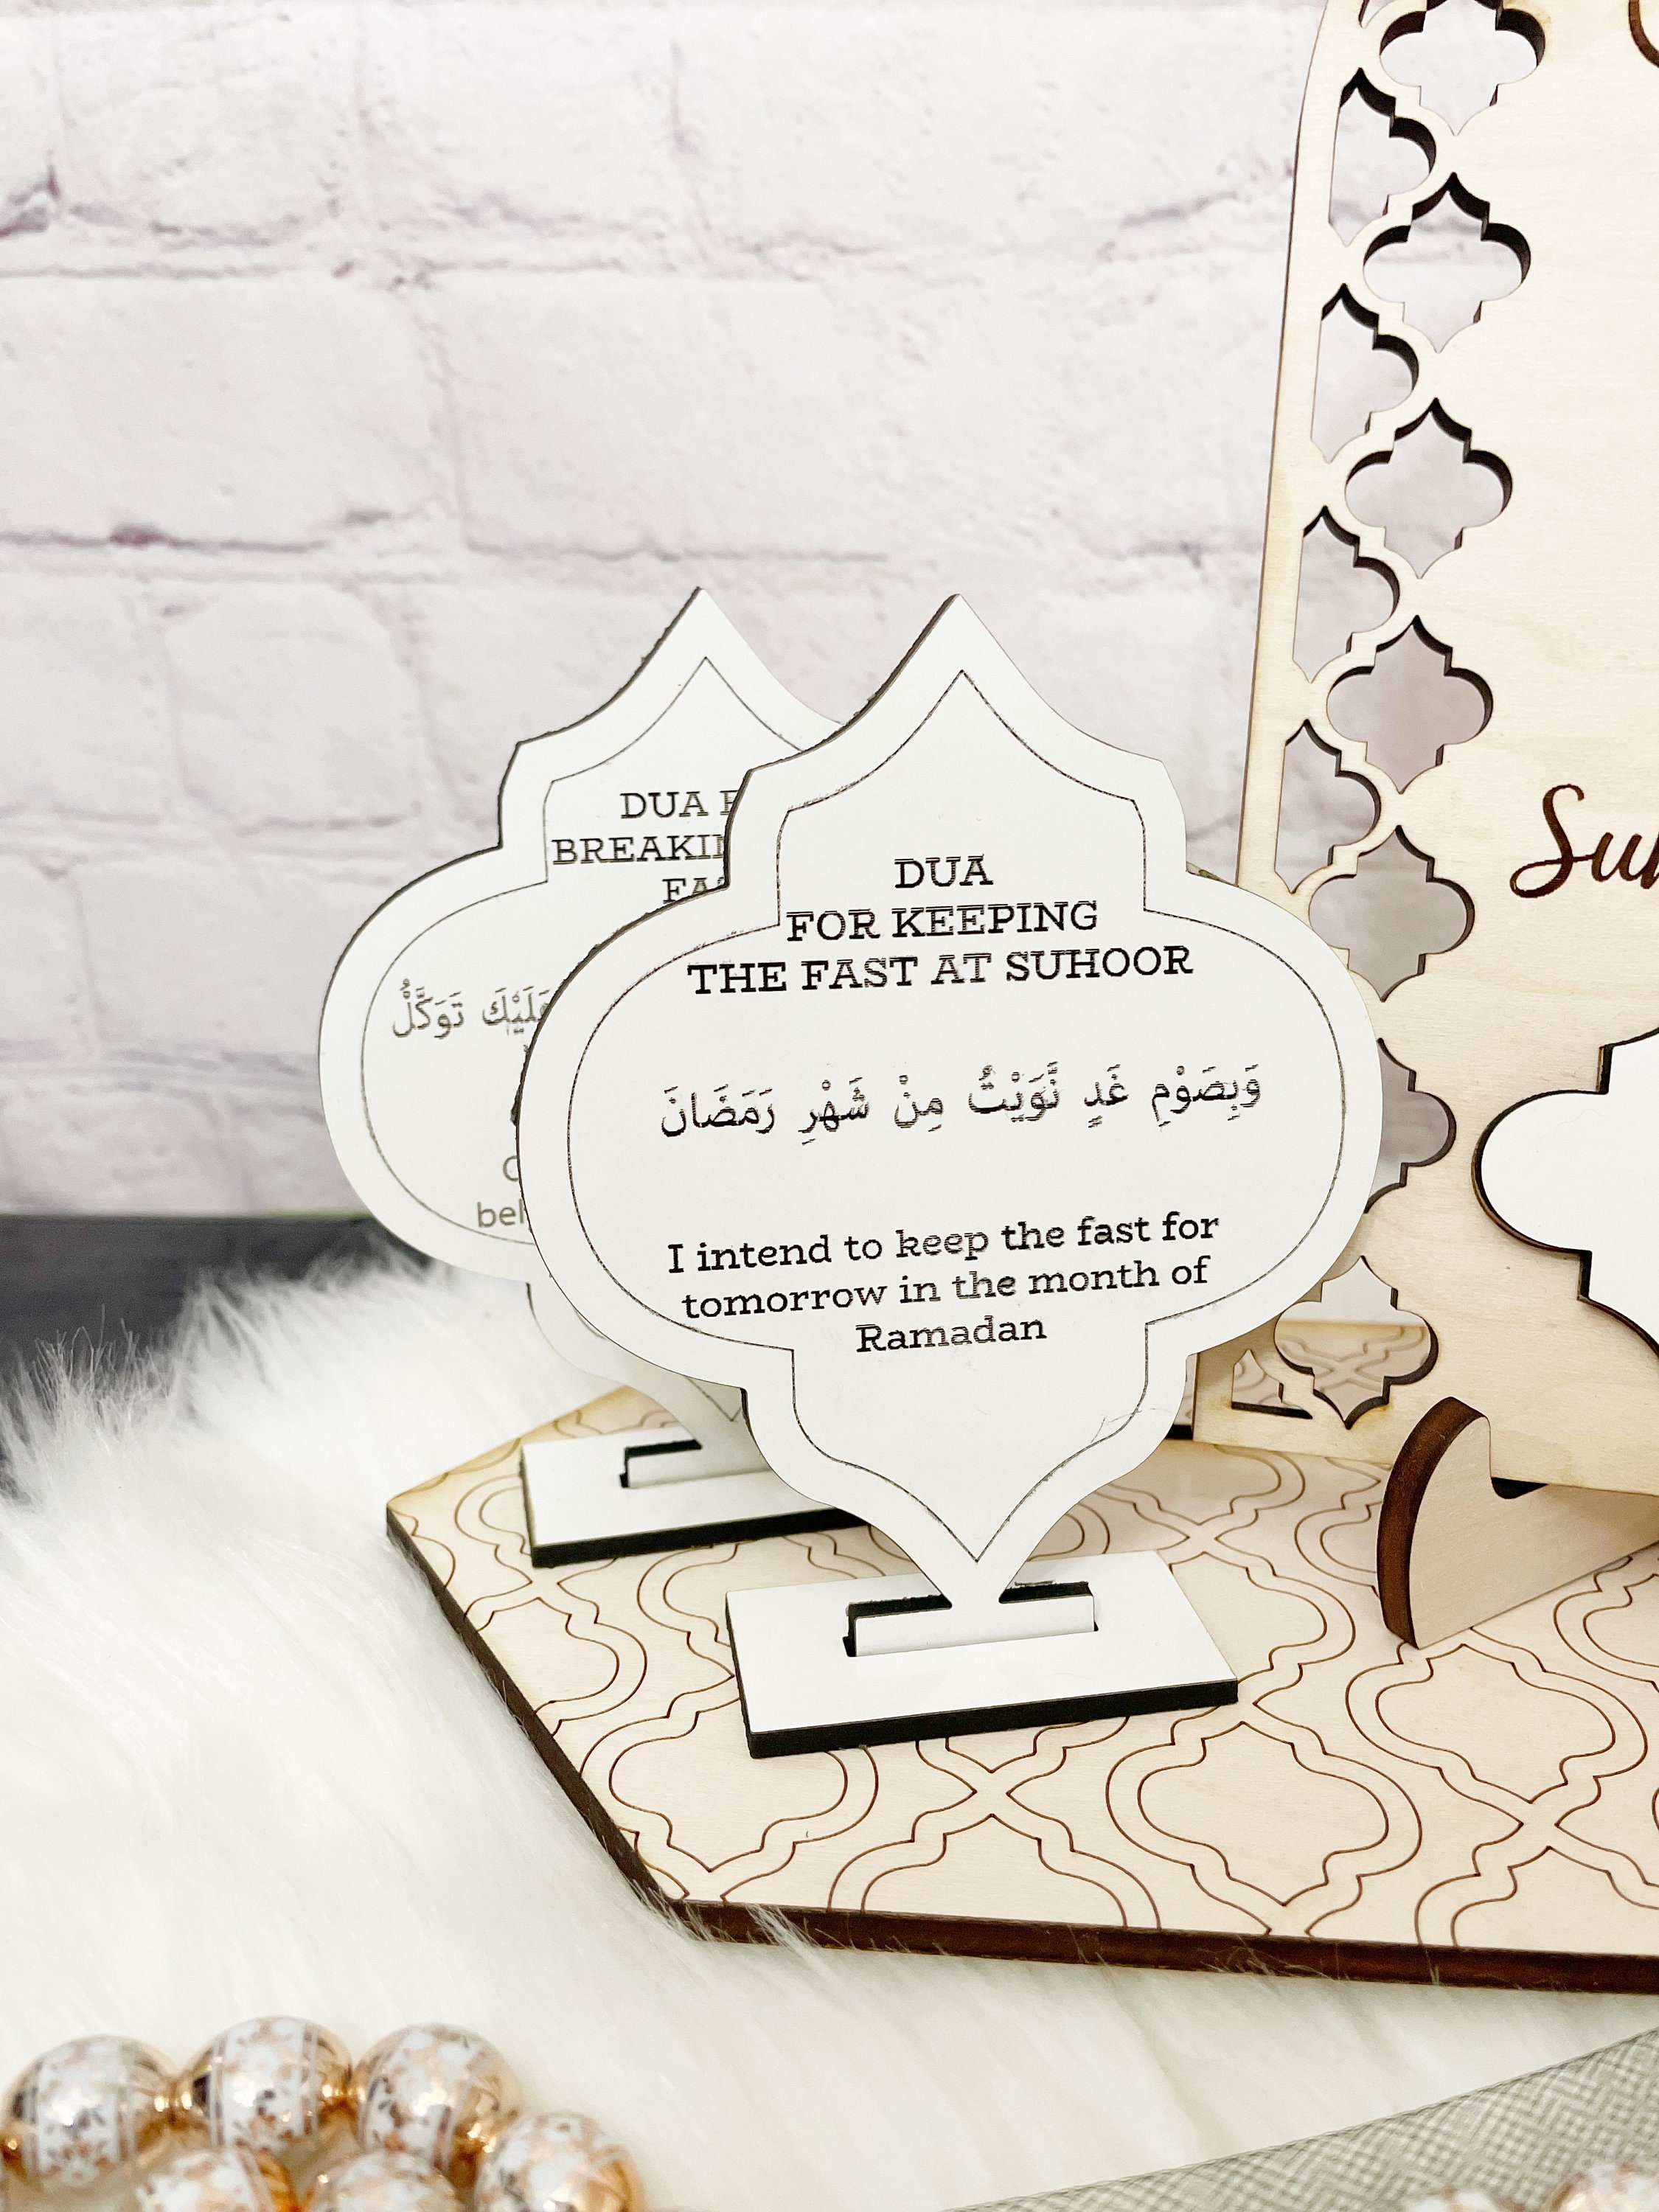 DUA
BREAKIN
عَلَيْكَ تَوَكَّلْ
DUA
FOR KEEPING
THE FAST AT SUHOOR
وَبِصَوْمِ غَدٍ نَّوَيْتُ مِنْ شَهْرِ رَمَضَانَ
I intend to keep the fast for
tomorrow in the month of
Ramadan